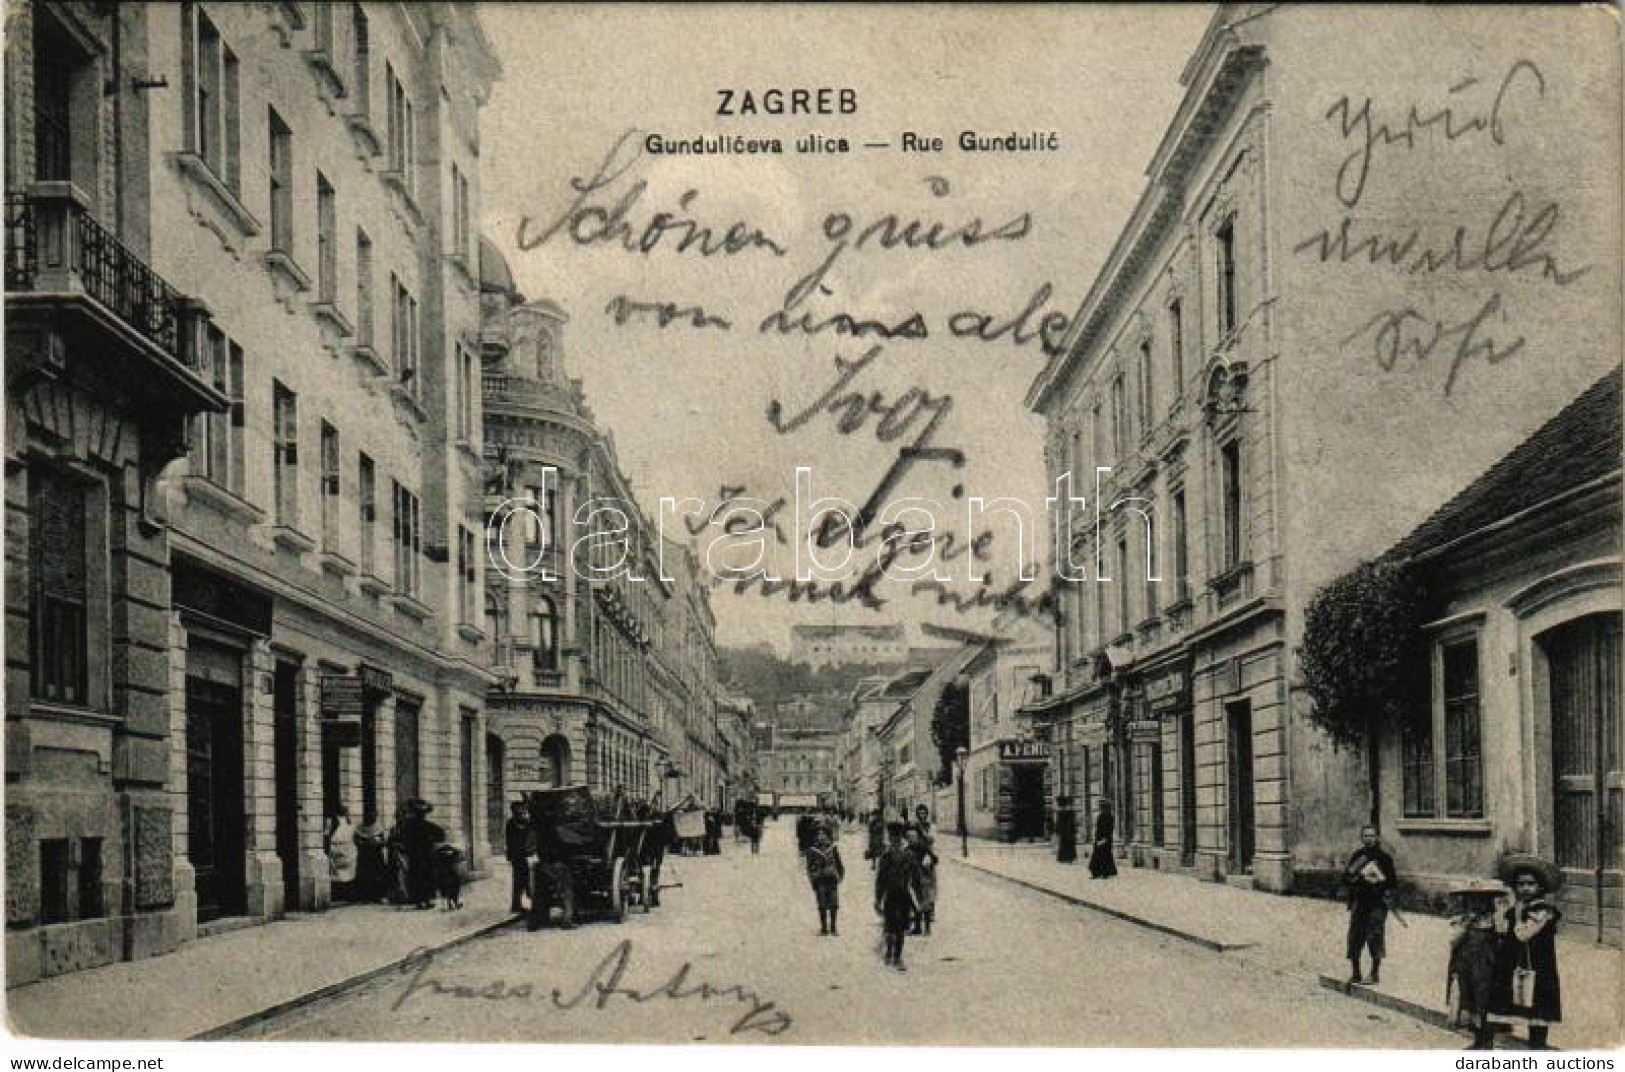 ZAGREB
Gundulićeva ulica — Rue Gundulić
Schönen gruss
von uns ale
Ivo
Ich
nicht
Sofi
Gruss Anton
darabanth
© darabanth.com
darabanth auctions